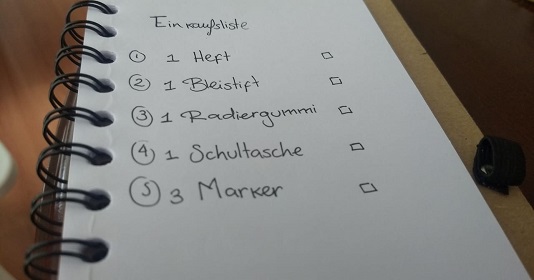 Einkaufsliste
① 1 Heft □
② 1 Bleistift □
③ 1 Radiergummi □
④ 1 Schultasche □
⑤ 3 Marker □